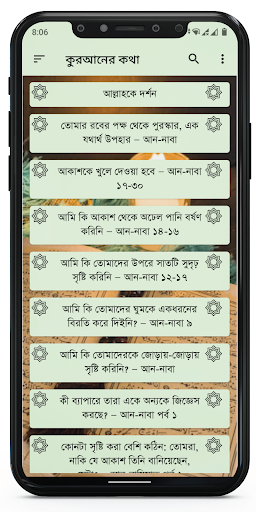 8:06
কুরআনের কথা
আল্লাহকে দর্শন
তোমার রবের পক্ষ থেকে পুরস্কার, এক
যথার্থ উপহার – আন-নাবা
আকাশকে খুলে দেওয়া হবে – আন-নাবা
১৭-৩০
আমি কি আকাশ থেকে অঢেল পানি বর্ষণ
করিনি – আন-নাবা ১৪-১৬
আমি কি তোমাদের উপরে সাতটি সুদৃঢ়
সৃষ্টি করিনি – আন-নাবা ১২-১৭
আমি কি তোমাদের ঘুমকে একধরনের
বিরতি করে দিইনি? – আন-নাবা ৯
আমি কি তোমাদেরকে জোড়ায়-জোড়ায়
সৃষ্টি করিনি? – আন-নাবা
কী ব্যাপারে তারা একে অন্যকে জিজ্ঞেস
করছে? – আন-নাবা পর্ব ১
কোনটা সৃষ্টি করা বেশি কঠিন: তোমরা,
নাকি যে আকাশ তিনি বানিয়েছেন,